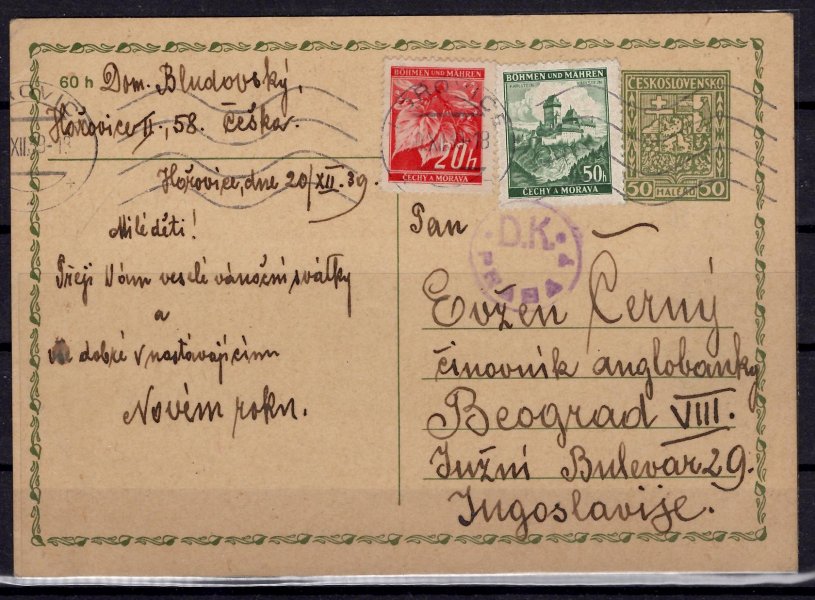 60 h Dom. Bludovský,
Hořovice II., 58. Česka.
Hořovice, dne 20/XII. 39.
Milé děti!
Přeji Vám veselé vánoční svátky
a
vše dobré v nastávajícím
Novém roku.
BÖHMEN UND MÄHREN
20h
ČECHY A MORAVA
BÖHMEN UND MÄHREN
50h
ČECHY A MORAVA
ČESKOSLOVENSKO
50 HALÉŘŮ 50
D.K.
PRAHA 7
Pan
Evžen Černý
činovník anglobanky
Beograd VIII.
Južní Bulevar 29.
Jugoslavije.